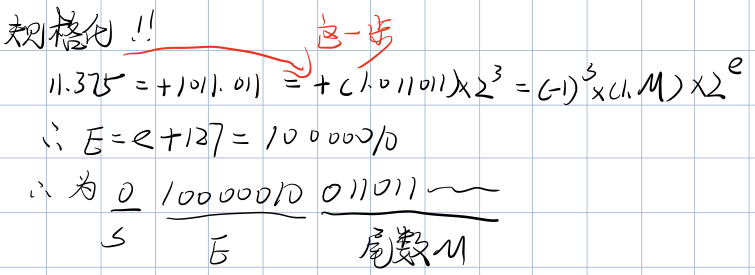 规格化!! 这一步
11.375 = +1011.011 = +(1.011011)×2^3 = (-1)^s×(1.M)×2^e
∴ E=e+127=10000010
∴ 为 0 10000010 011011——
S E 尾数M